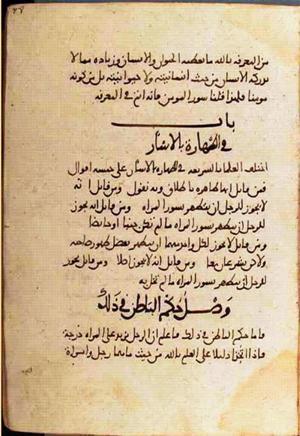 من المعرفة بالله ما تعطيه الحيوان والانسان وزيادة مما لا
يدركه الانسان من حيث انسانيته ولا حيوانيته بل من كونه
مومنا فلهذا قلنا سور المومن فانه اتم في المعرفة
باب
في الطهارة بالاسار
اختلف العلما بالشريعة في الطهارة بالاسار على خمسة اقوال
فمن قايل انها طاهرة باطلاق وبه نقول ومن قايل انه
لا يجوز للرجل ان يتطهر بسور المراه ومن قايل انه يجوز
للرجل ان يتطهر بسور المراه ما لم تكن جنبا او حايضا
ومن قايل لا يجوز لكل واحد منهما ان يتطهر بفضل طهور صاحبه
ولكن يشرعان معا ومن قايل انه لا يجوز اصلا ومن قايل يجوز
للرجل ان يتطهر بسور المراه ما لم تخل به
وصل حكم الباطن في ذلك
فاما حكم الباطن في ذلك فاعلم ان الرجل يزيد على المراه درجة
فاذا اتخذا دليلا على العلم بالله من حيث ما هما رجل وامراة